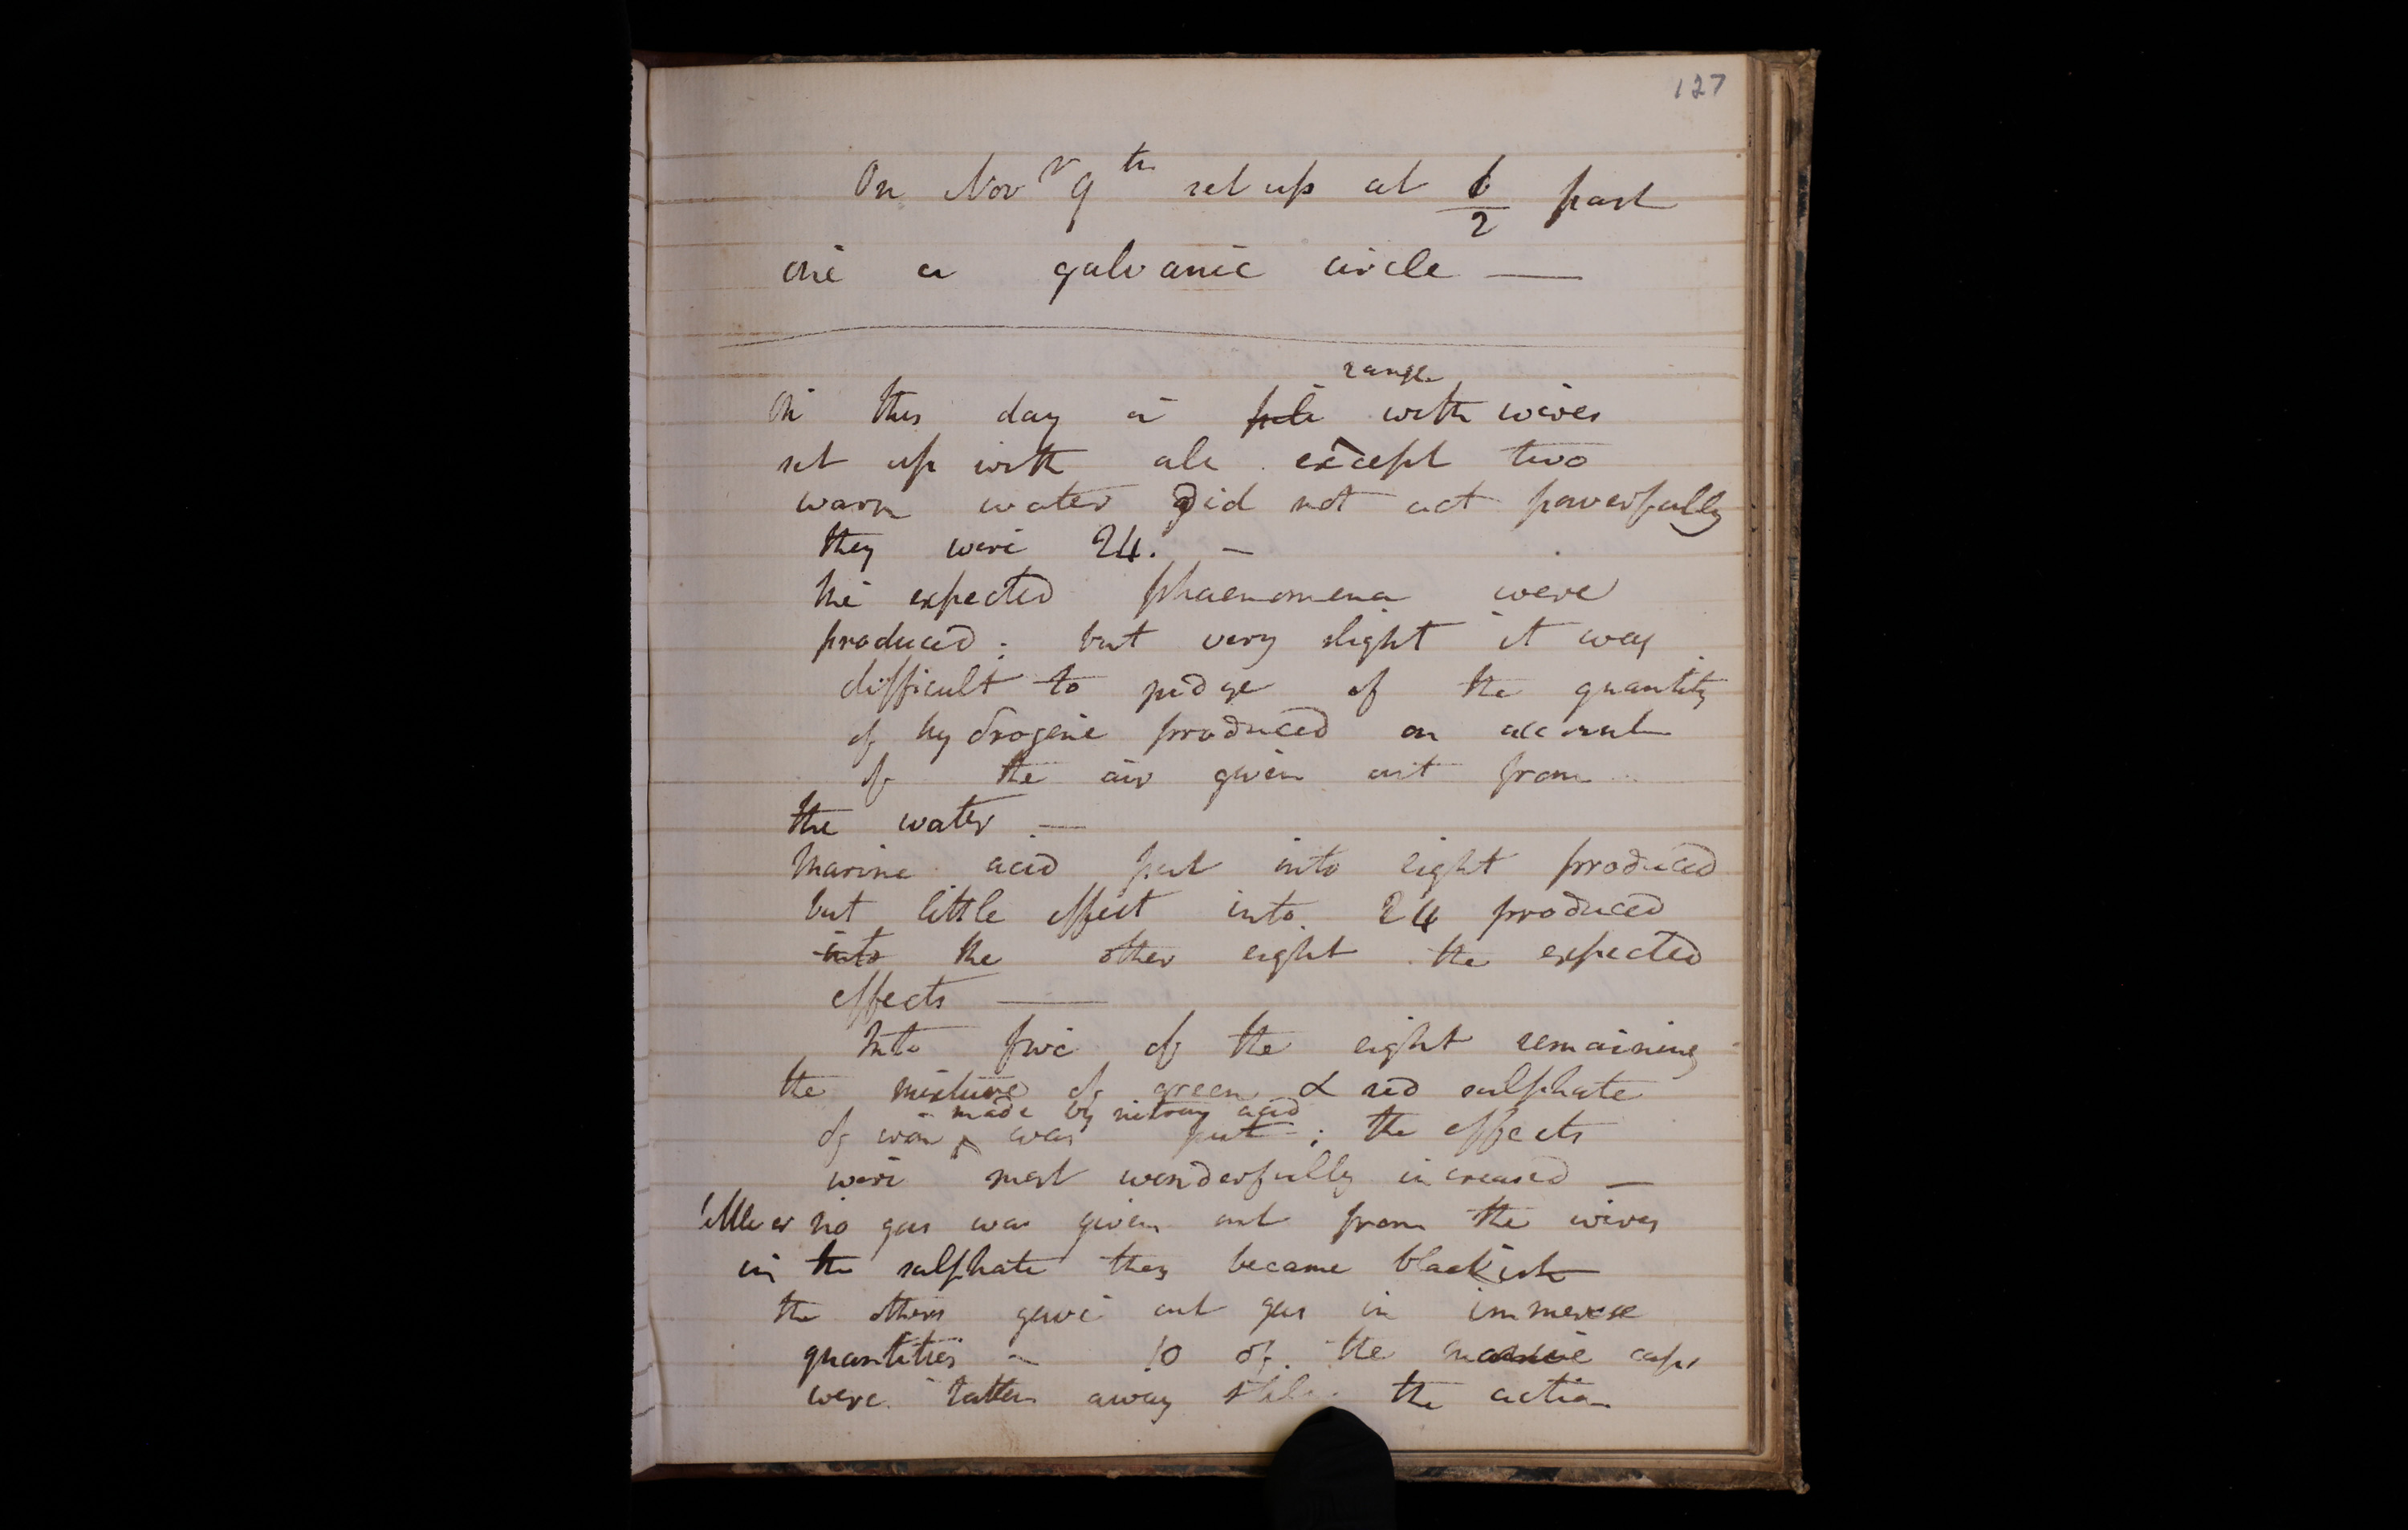 127
On Novr 9th set up at 1/2 past
one a galvanic circle —
range
On this day a pile with wires
set up with all except two
warm water did not act powerfully
they were 24. —
the expected phaenomena were
produced; but very slight it was
difficult to judge of the quantity
of hydrogene produced on account
of the air given out from
the water —
Marine acid put into eight produced
but little effect into 24 produced
into the other eight the expected
effects —
Into five of the eight remaining
the mixture of green & red sulphate
made by nitrous acid
of iron ^ was put; the effects
were most wonderfully increased —
little or no gas was given out from the wires
in the sulphate they became blackish
the others gave out gas in immense
quantities – 10 of the marine cups
were taken away still the action